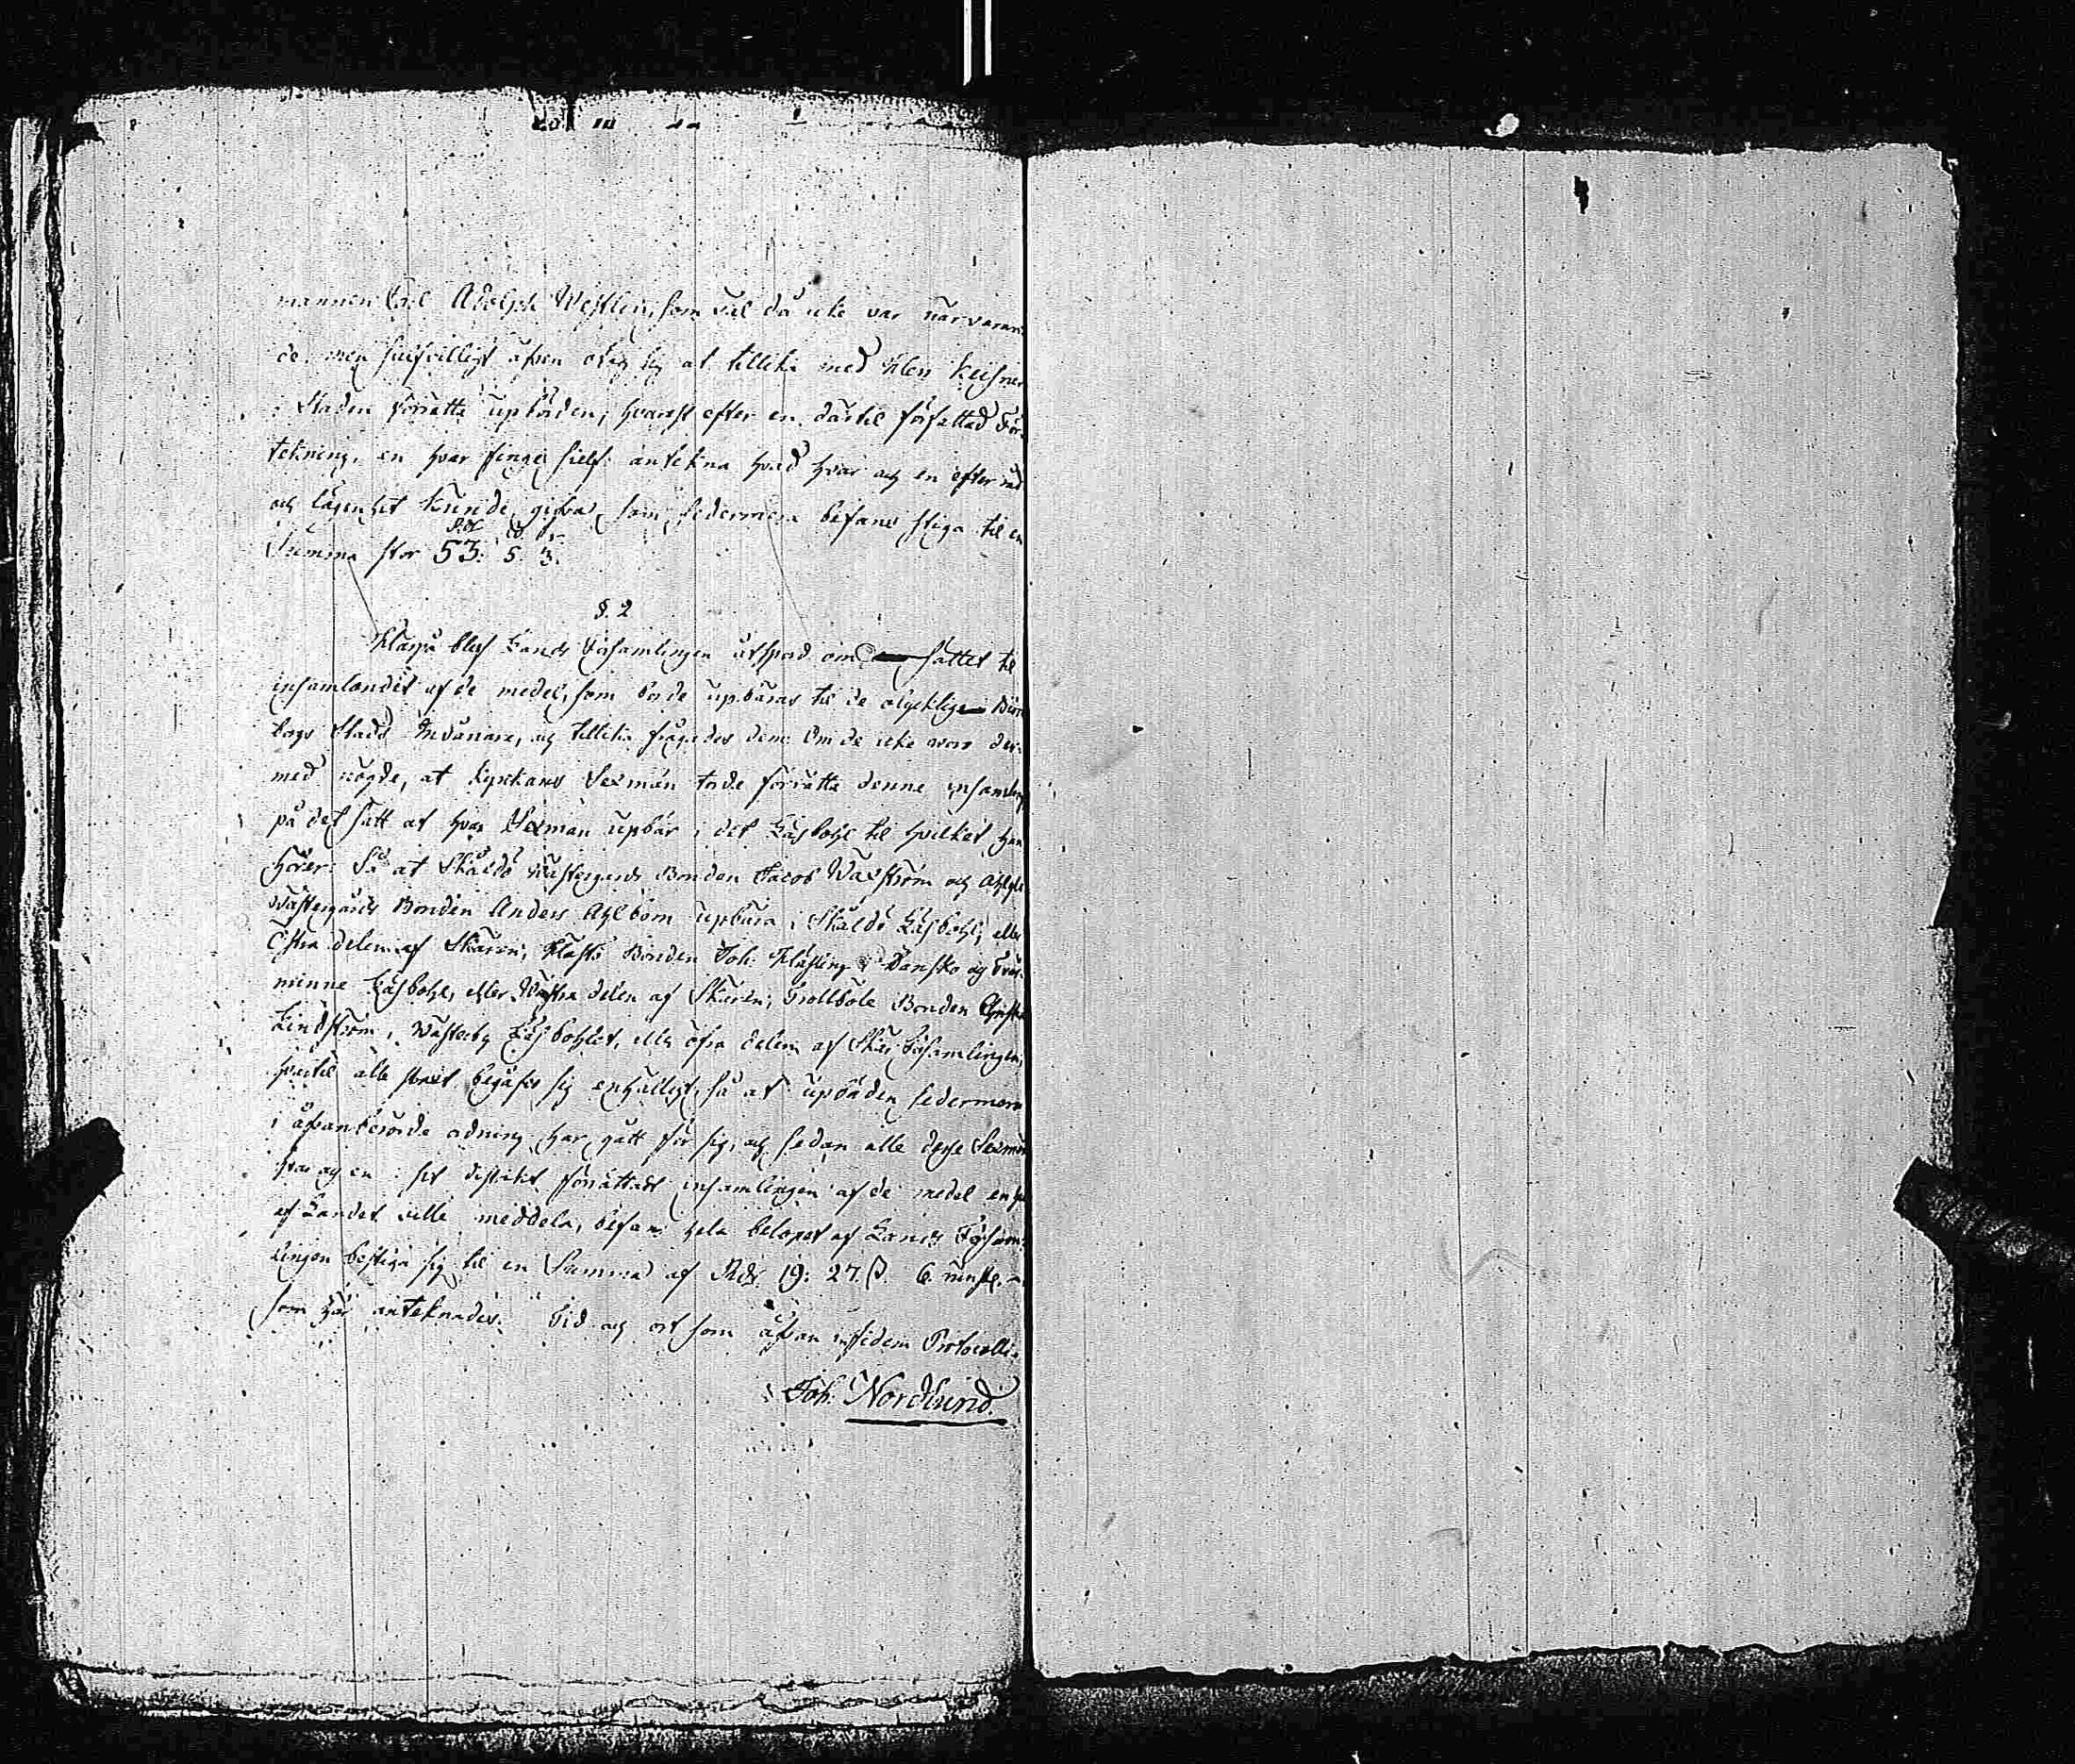 mannen Carl Adolph Westlin, som väl då icke var närvaran-
de, men sielfvilligt äfven åtog sig at tillika med Klen Keisner
i Staden förrätta upbörden, hvarest efter en därtil författad För-
tekning, en hvar finge sielf antekna hvad hvar och en efter råd
och lägenhet kunde gifva, som sedermera befans stiga til en
Summa stor 53. 5. 3.
§. 2
Härpå blef Lands Församlingen åtspord om sättet til
insamlandet af de medel, som borde upbäras til de olyckliga Biörne-
borgs Stads Invånare, och tillika frågades dem: Om de icke voro der-
med nögde, at Kyrkans Sexmän torde förrätta denne insamling
på det sätt at hvar Sexman upbär i det Läsbohl til hvilket han
hörer: Så at Skåldö Wästergårds Bonden Jacob Waxström och
Wästergårds Bonden Anders Ahlbom upbära i Skåldö Läsbohl, eller
Östra delen af Skären, Bonden Joh: i Dansko och Tvär-
minne Läsbohl, eller Wästra delen af Skären; Trollböle Bonden
Lindström, i Wästerby Läsbohlet, eller öfra delen af Församlingen,
hvartil alle strax begåfvo sig enhälligt, så at upbörden sedermera
i åfvanberörde ordning har gått för sig, och sedan alle desse Sexmän
hvar och en i sit district förrättadt insamlingen af de medel en hvar
af Landet ville meddela, befans hela belopet af Lands Försam-
lingen bestiga sig til en Summa af Rdr 19: 27. ß. 6. runst.
som här anteknades. Tid och ort som åfvan in fidem Protocolli.
Joh. Nordlund.